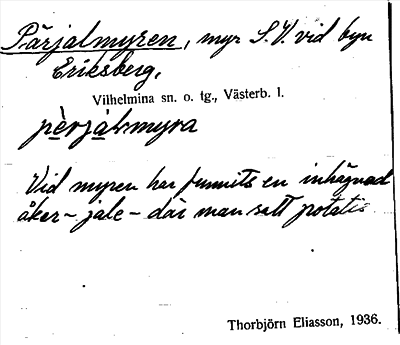 Pärjalmyren, myr S.V. vid byn
Eriksberg,
Vilhelmina sn. o. tg., Västerb. l.
pèrjalsmyra
Vid myren har funnits en inhägnad
åker - jale - där man satt potatis
Thorbjörn Eliasson, 1936.